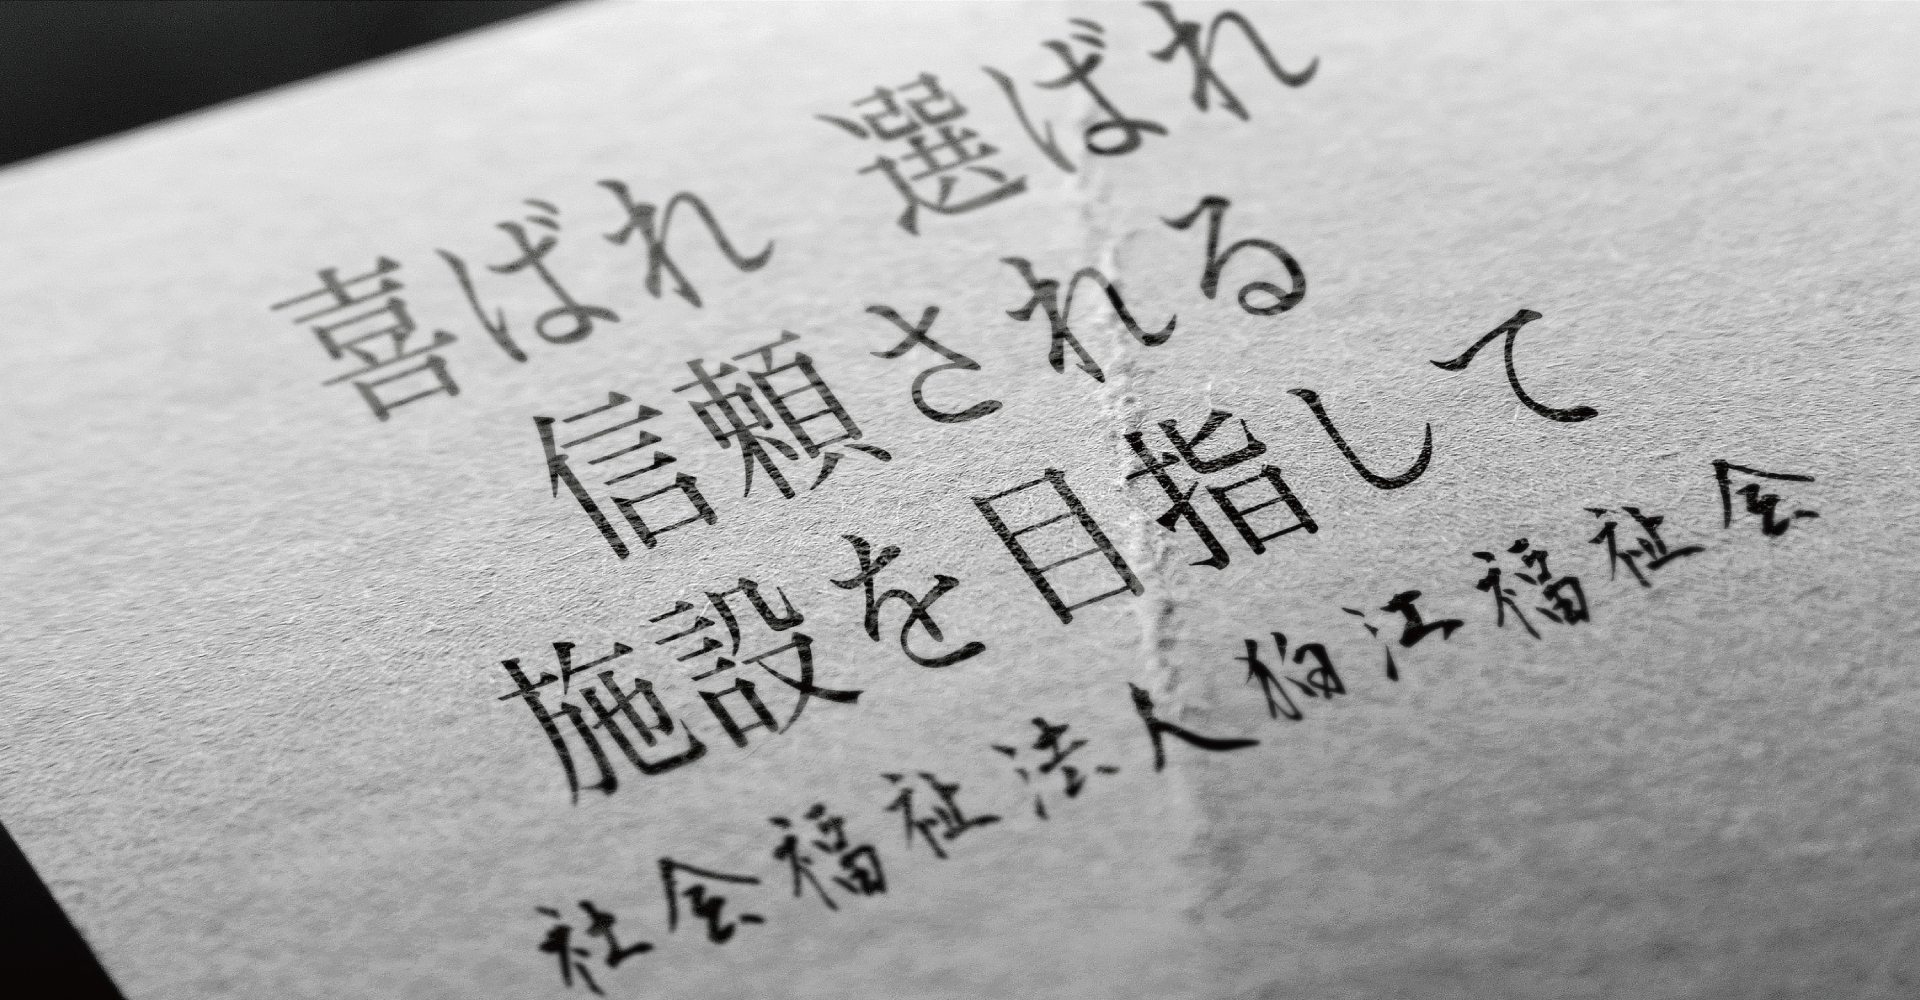 喜ばれ 選ばれ
信頼される
施設を目指して
社会福祉法人狛江福祉会